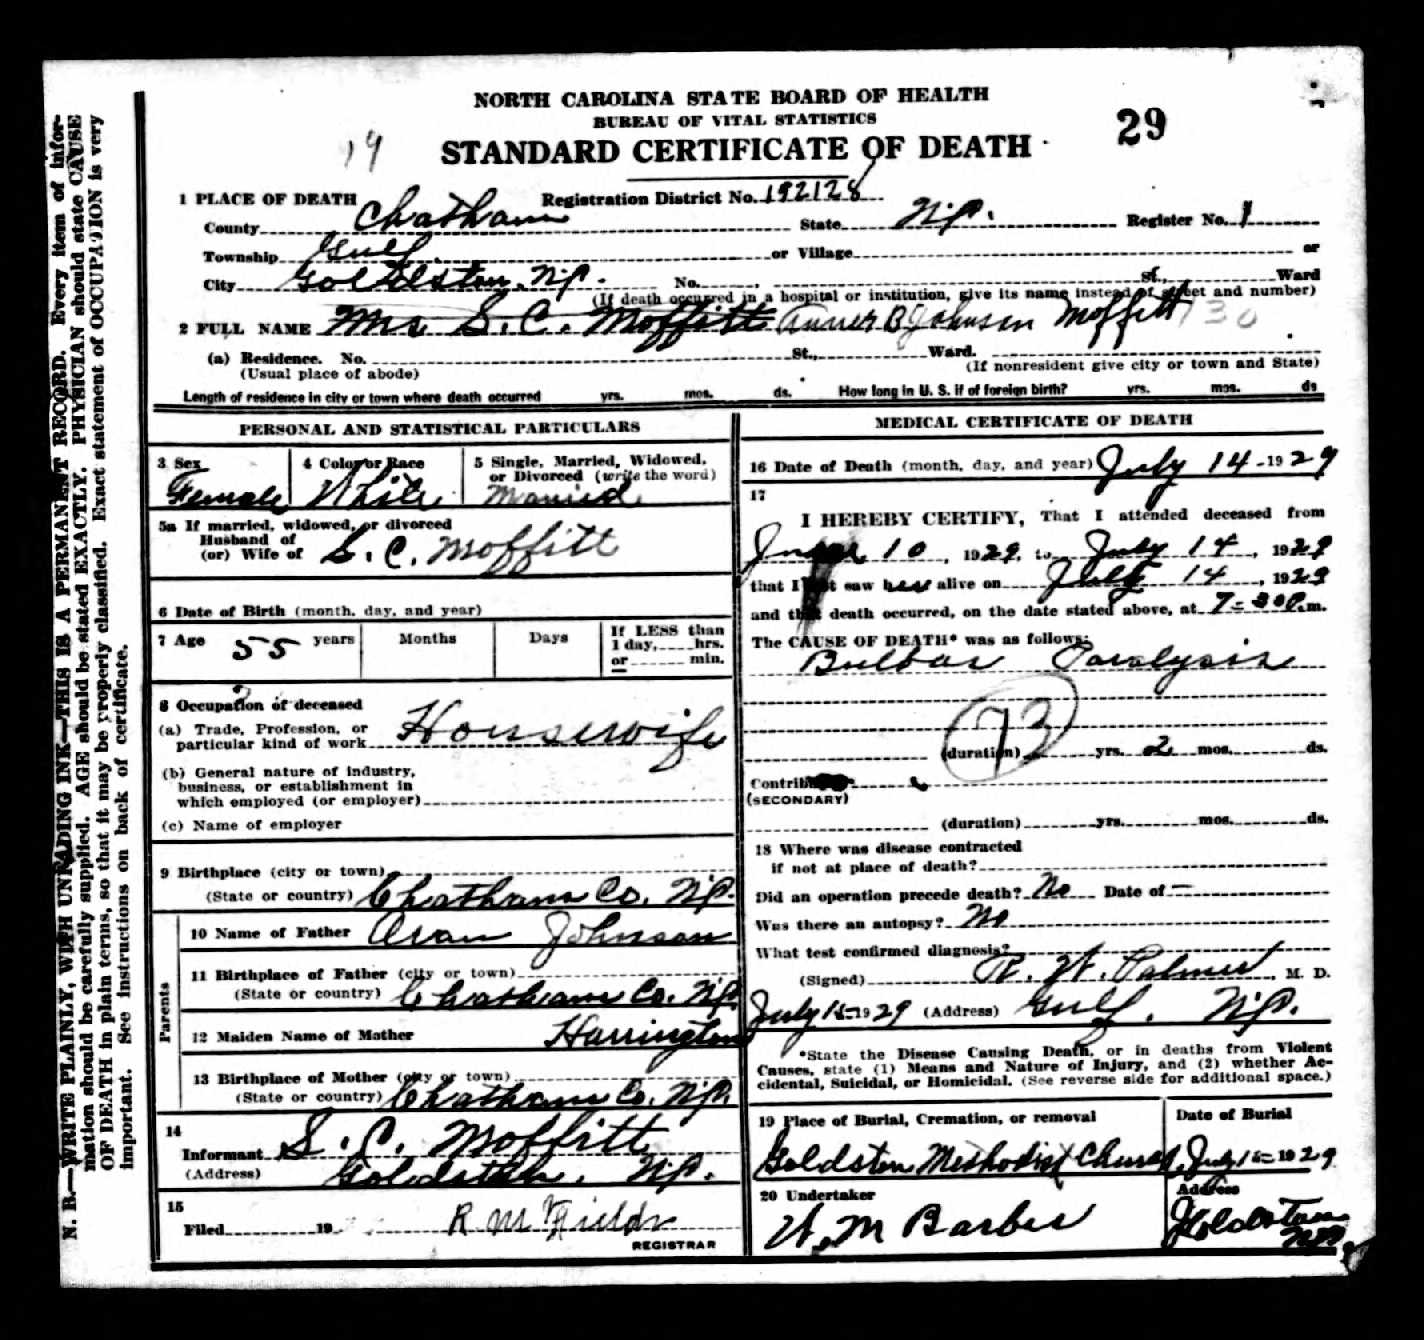 NORTH CAROLINA STATE BOARD OF HEALTH
BUREAU OF VITAL STATISTICS
STANDARD CERTIFICATE OF DEATH
29
19
1 PLACE OF DEATH Registration District No. 192128
County Chatham State N.C. Register No. 1
Township Gulf or Village or
City Goldston, N.C. No. St. Ward
(If death occurred in a hospital or institution, give its name instead of street and number)
2 FULL NAME Mrs S. C. Moffitt B Johnson Moffitt 730
(a) Residence. No. St., Ward.
(Usual place of abode) (If nonresident give city or town and State)
Length of residence in city or town where death occurred yrs. mos. ds. How long in U. S. if of foreign birth? yrs. mos. ds
PERSONAL AND STATISTICAL PARTICULARS
3 Sex Female
4 Color or Race White
5 Single, Married, Widowed, or Divorced (write the word) Married
5a If married, widowed, or divorced
Husband of
(or) Wife of S. C. Moffitt
6 Date of Birth (month, day, and year)
7 Age 55 years Months Days If LESS than
1 day, hrs.
or min.
8 Occupation of deceased
(a) Trade, Profession, or
particular kind of work Housewife
(b) General nature of industry,
business, or establishment in
which employed (or employer)
(c) Name of employer
9 Birthplace (city or town)
(State or country) Chatham Co. N.C.
Parents
10 Name of Father Johnson
11 Birthplace of Father (city or town)
(State or country) Chatham Co. N.C.
12 Maiden Name of Mother Harrington
13 Birthplace of Mother (city or town)
(State or country) Chatham Co. N.C.
14
Informant S. C. Moffitt
(Address) Goldston, N.C.
15
Filed 19 R M Fields
REGISTRAR
MEDICAL CERTIFICATE OF DEATH
16 Date of Death (month, day, and year) July 14 - 1929
17
I HEREBY CERTIFY, That I attended deceased from
10, 1929, to July 14, 1929
that I last saw her alive on July 14, 1929
and that death occurred, on the date stated above, at 7-30 P. m.
The CAUSE OF DEATH* was as follows:
Bulbar Paralysis
73
(duration) yrs. 2 mos. ds.
(SECONDARY)
(duration) yrs. mos. ds.
18 Where was disease contracted
if not at place of death?
Did an operation precede death? No Date of —
Was there an autopsy? No
What test confirmed diagnosis?
(Signed) R. W. Palmer, M. D.
July 15-1929 (Address) Gulf, N.C.
*State the Disease Causing Death, or in deaths from Violent
Causes, state (1) Means and Nature of Injury, and (2) whether Ac-
cidental, Suicidal, or Homicidal. (See reverse side for additional space.)
19 Place of Burial, Cremation, or removal Date of Burial
Goldston Methodist Church July 15-1929
20 Undertaker Address
W. M Barber Goldston
N.C.
N. B.—WRITE PLAINLY, WITH UNFADING INK—THIS IS A PERMANENT RECORD. Every item of infor-
mation should be carefully supplied. AGE should be stated EXACTLY. PHYSICIAN should state CAUSE
OF DEATH in plain terms, so that it may be properly classified. Exact statement of OCCUPATION is very
important. See instructions on back of certificate.